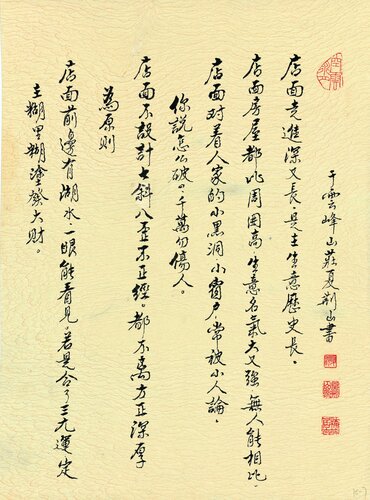 于雲峰山莊夏荆山書
店面走進深又長，是主生意歷史長。
店面房屋都比周围高，生意名氣大又強，無人能相比
店面对着人家的小黑洞小窗户，常被小人論。
你說怎么破？千萬勿傷人。
店面不設計七斜八歪不正經。都不离方正深厚
為原則
店面前邊有湖水一眼能看見。若是合了三九運定
主糊里糊塗發大財。